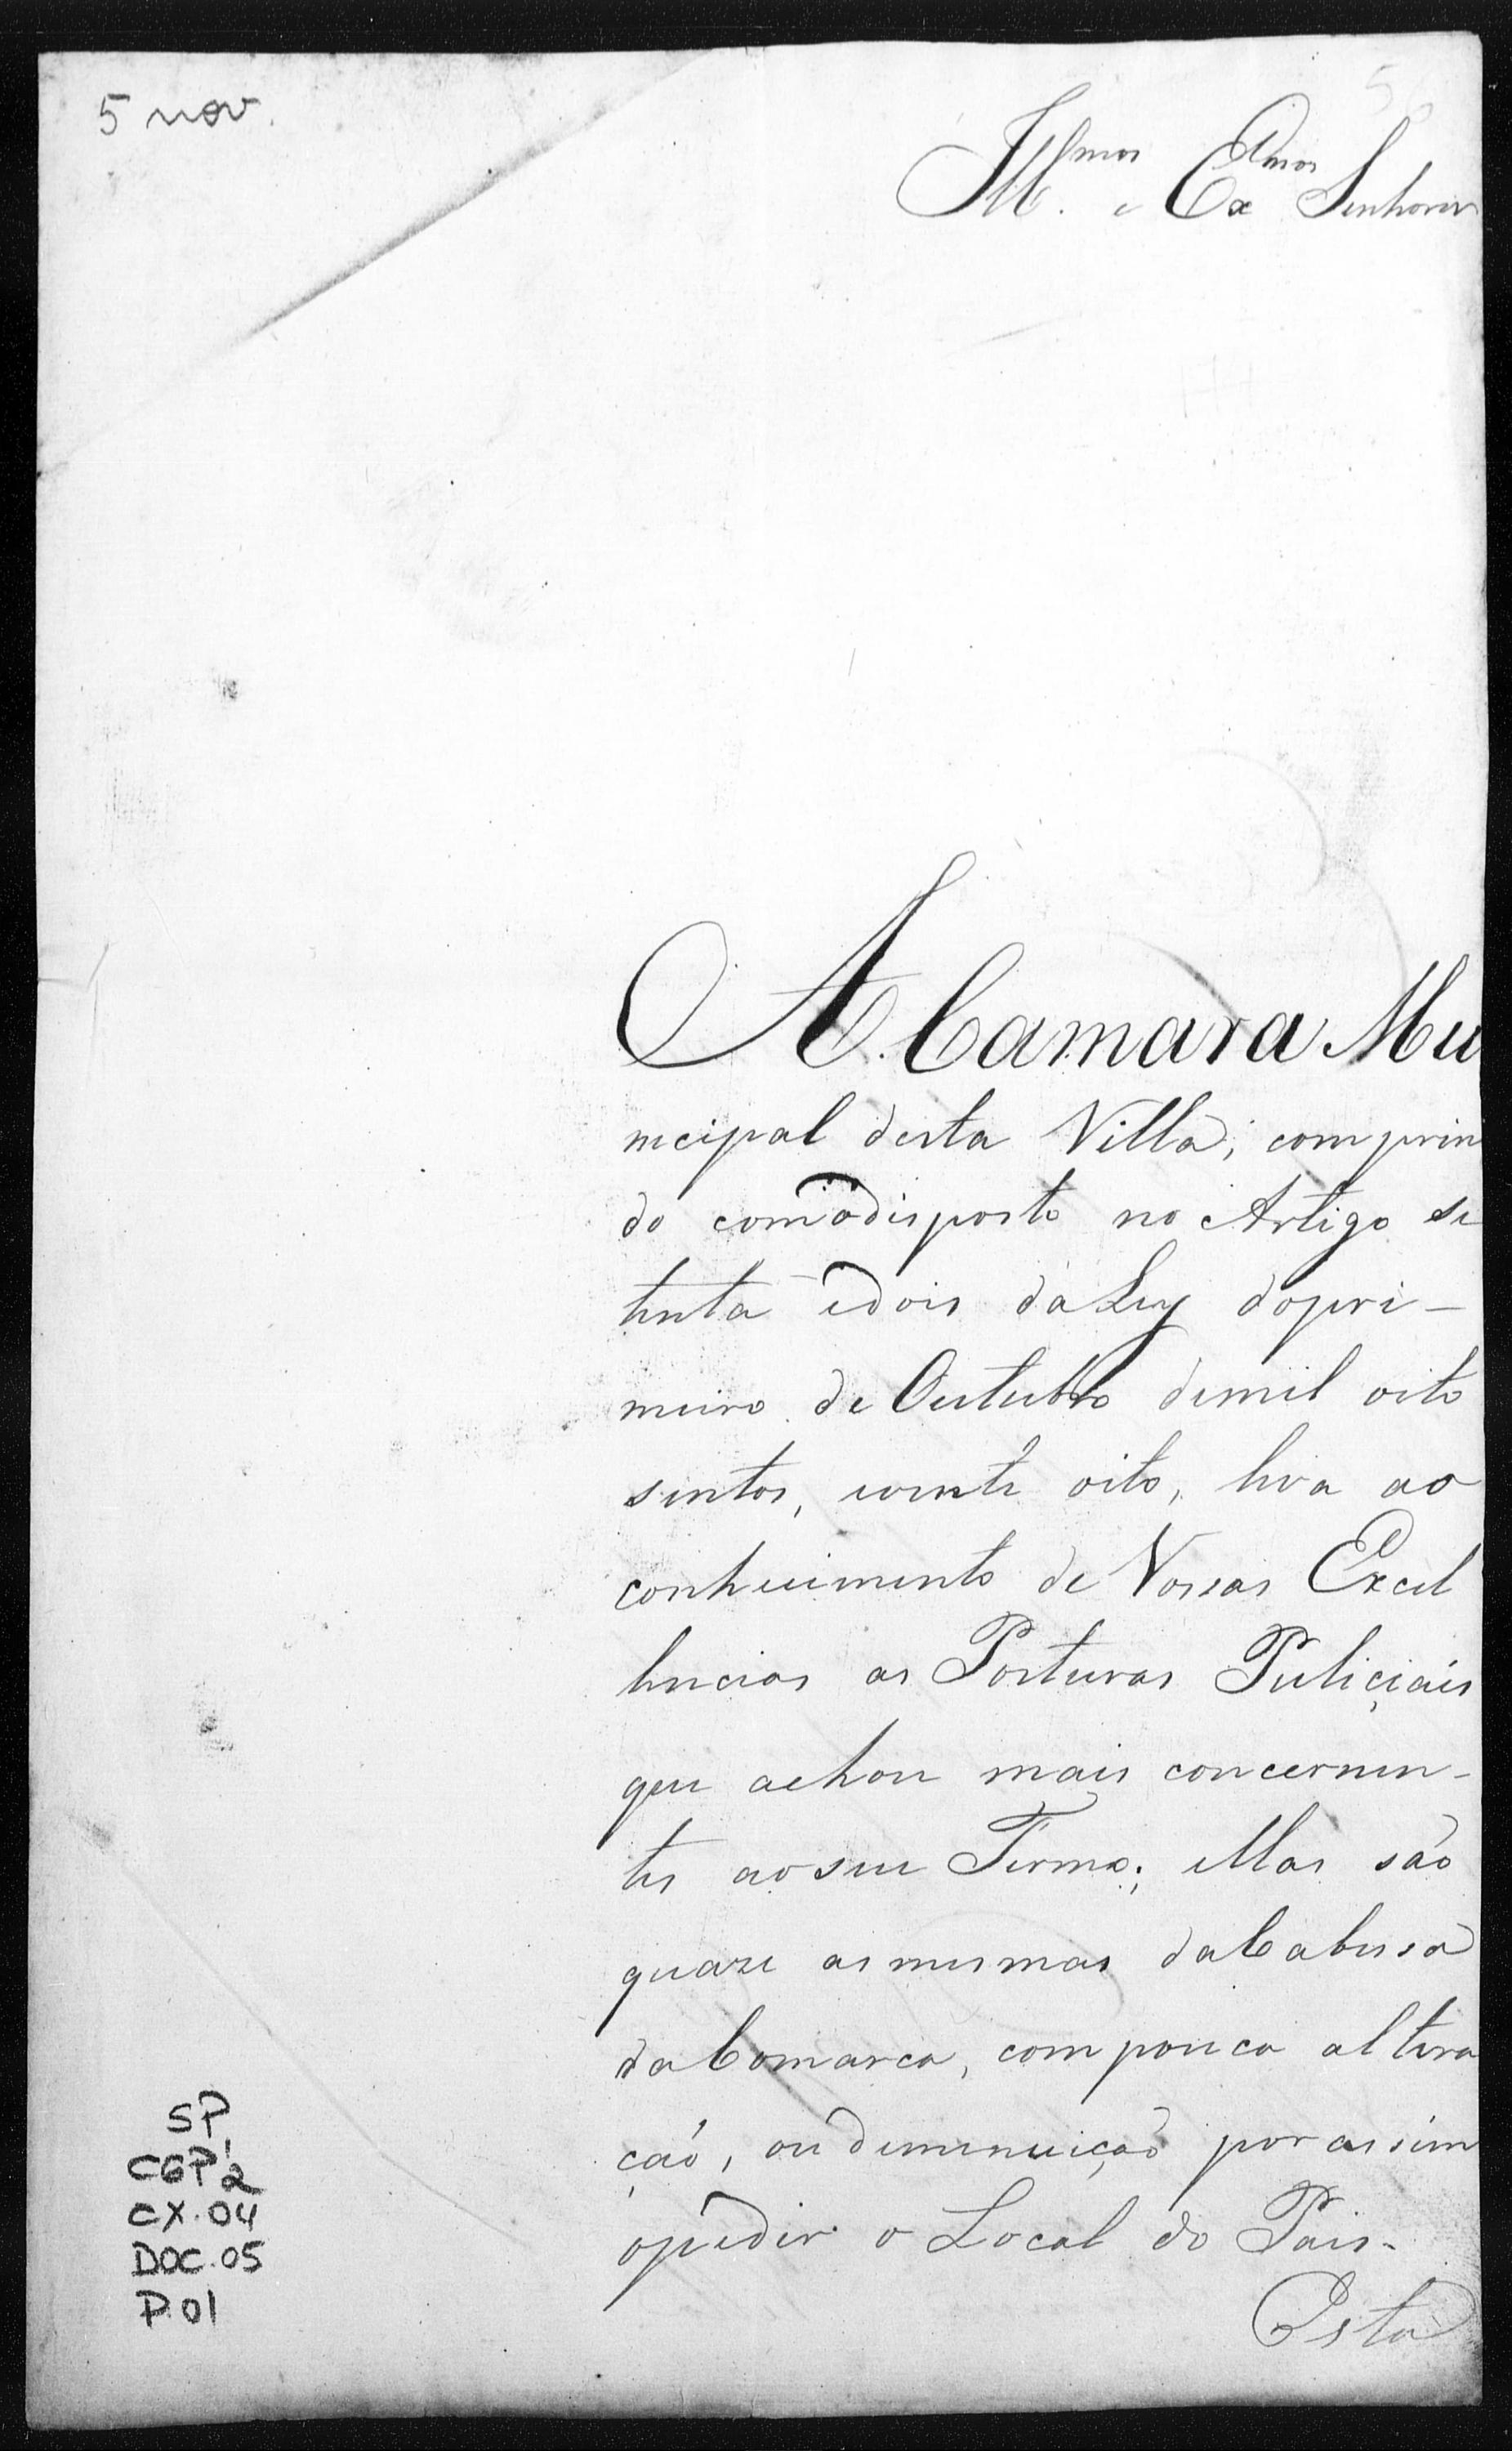 5 nov.
56
Ill.mos e Ex.mos Senhores
A Camara Mu
nicipal desta Villa; comprin
do comodisposto no Artigo se
tenta edois da Ley dopri-
meiro de Outubro demil oito
sentos, vinte oito, leva ao
conhecimento de Vossas Excel
lencias as Posturas Puliçiais
que achou mais concernen-
tes aoseu Termo; ellas são
quaze asmesmas daCabesa
daComarca, compouca altera
ção, oudemenuição porassim
opedir o Local do Pais.
Esta
SP
CGP2
CX.04
DOC.05
P.01